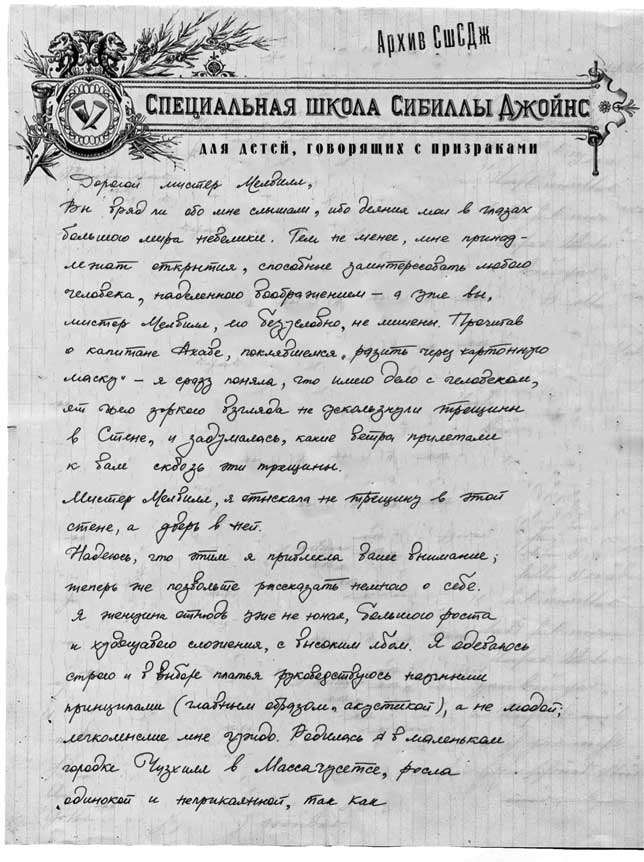 Архив СшСДж
Специальная школа Сибиллы Джойнс
для детей, говорящих с призраками
Дорогой мистер Мелвилл,
Вы вряд ли обо мне слышали, ибо деяния мои в глазах
большого мира невелики. Тем не менее, мне принад-
лежат открытия, способные заинтересовать любого
человека, наделенного воображением – а уже вы,
мистер Мелвилл, его безусловно, не лишены. Прочитав
о капитане Ахаве, поклявшемся „разить через картонную
маску“ – я сразу поняла, что имею дело с человеком,
от чьего зоркого взгляда не ускользнули трещины
в Стене, и задумалась, какие ветра прилетали
к вам сквозь эти трещины.
Мистер Мелвилл, я отыскала не трещину в этой
стене, а дверь в ней.
Надеюсь, что этим я привлекла ваше внимание;
теперь же позвольте рассказать немного о себе.
Я женщина отнюдь уже не юная, большого роста
и худощавого сложения, с высоким лбом. Я одеваюсь
строго и в выборе платья руководствуюсь научными
принципами (главным образом, акустикой), а не модой;
легкомыслие мне чуждо. Родилась я в маленьком
городке Чизхилл в Массачусетсе, росла
одинокой и неприкаянной, так как